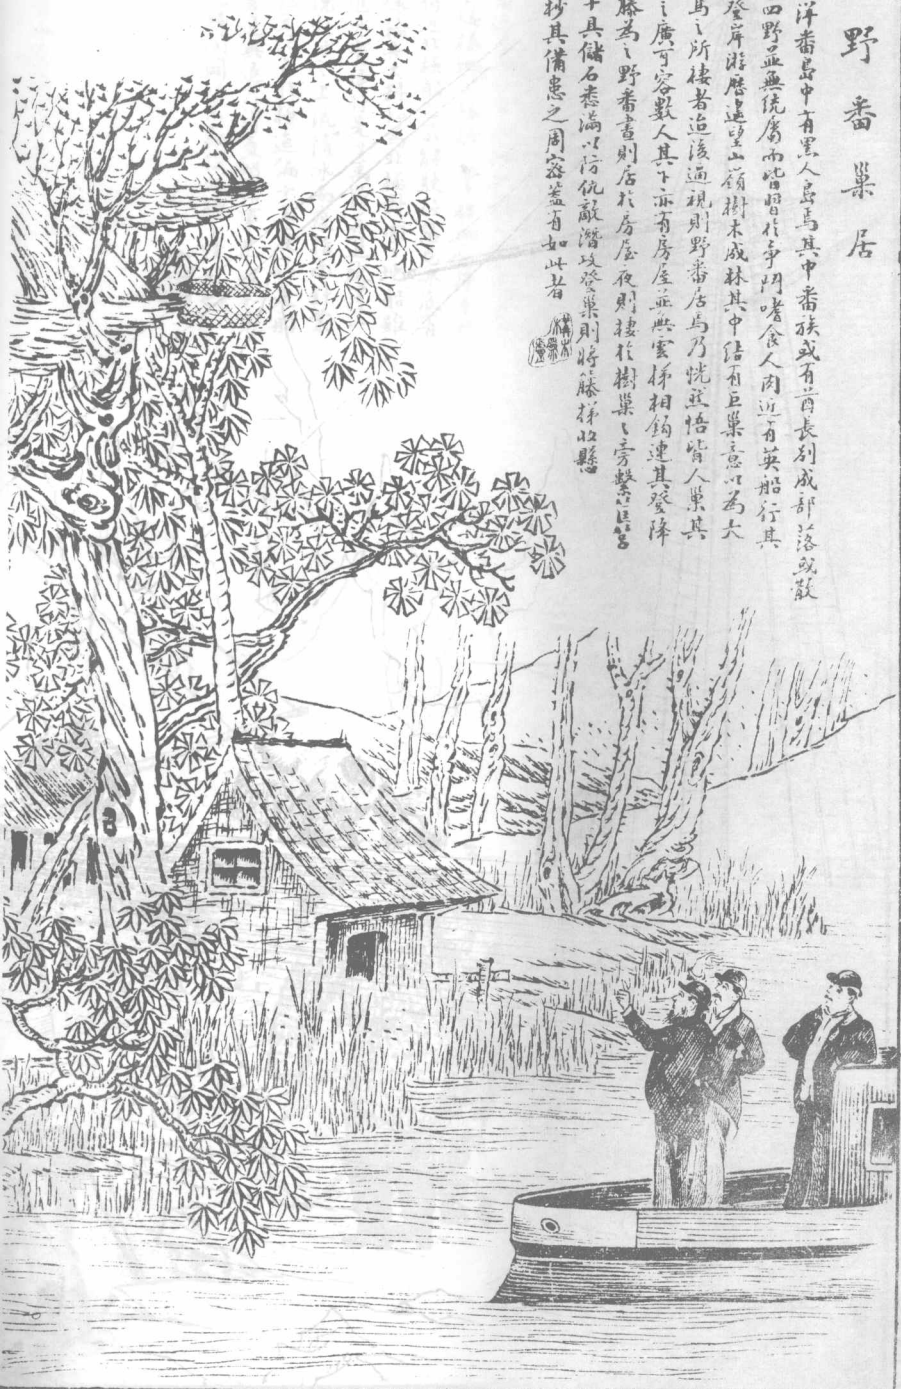 野番巢居
洋番島中有黑人島焉其中番族或有酋長列成部落或散
四野並無統屬而皆習於爭鬥嗜食人肉近有英船行其
登岸游歷遠望山嶺樹木成林其中結有巨巢意以為大
鳥之所棲者迨後適現則野番居焉乃恍然悟皆人巢其
之廣可容數人其下亦有房屋並無雲梯相鉤連其登降
藤為之野番晝則居於房屋夜則棲於樹巢巢旁繫
十具儲石悉滿以防仇敵潛攻登巢則將籐梯收懸
杪其備患之周密蓋有如此者